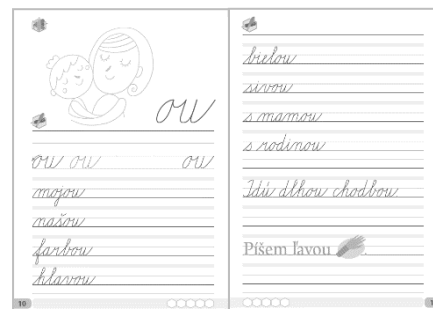 ou
ou ou ou
mojou
našou
farbou
hlavou
10
bielou
sivou
s mamou
s rodinou
Idú dlhou chodbou.
Píšem ľavou